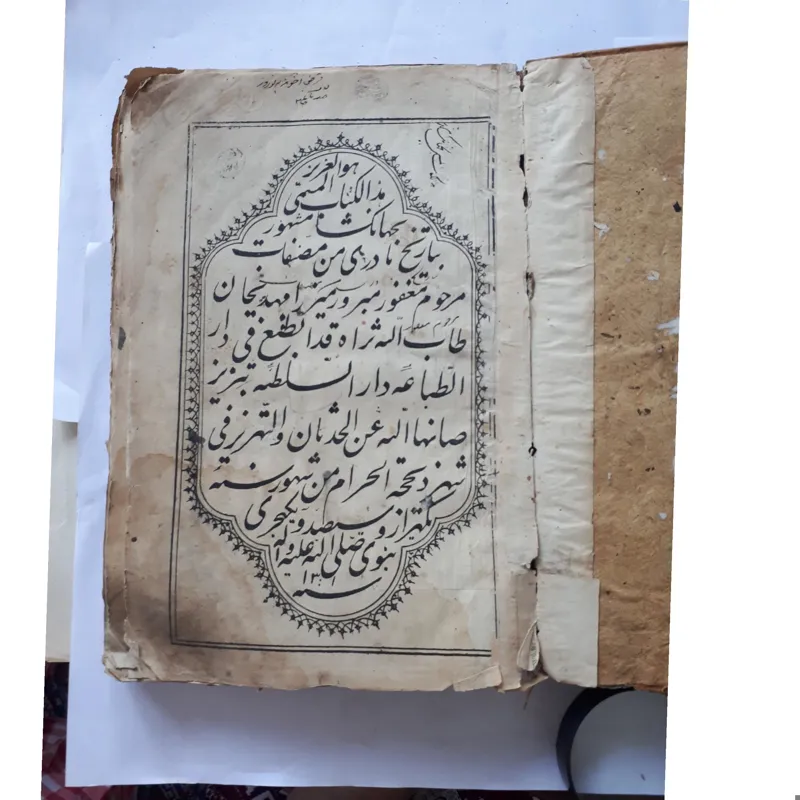 هوالعزیز
هذا الکتاب المسمّی
بجهانگشا مشهور
بتاریخ نادری من مصنفات
مرحوم مغفور مبرور میرزا مهدیخان
طاب الله ثراه قد انطبع فی دار
الطباعه دار السلطنه تبریز
صانها الله عن الحدثان والتهزیز فی
شهر ذیحجة الحرام من شهور سنه
یکهزار و سیصد و یکهجری
نبوی صلی الله علیه وآله
سنه ۱۳۰۱